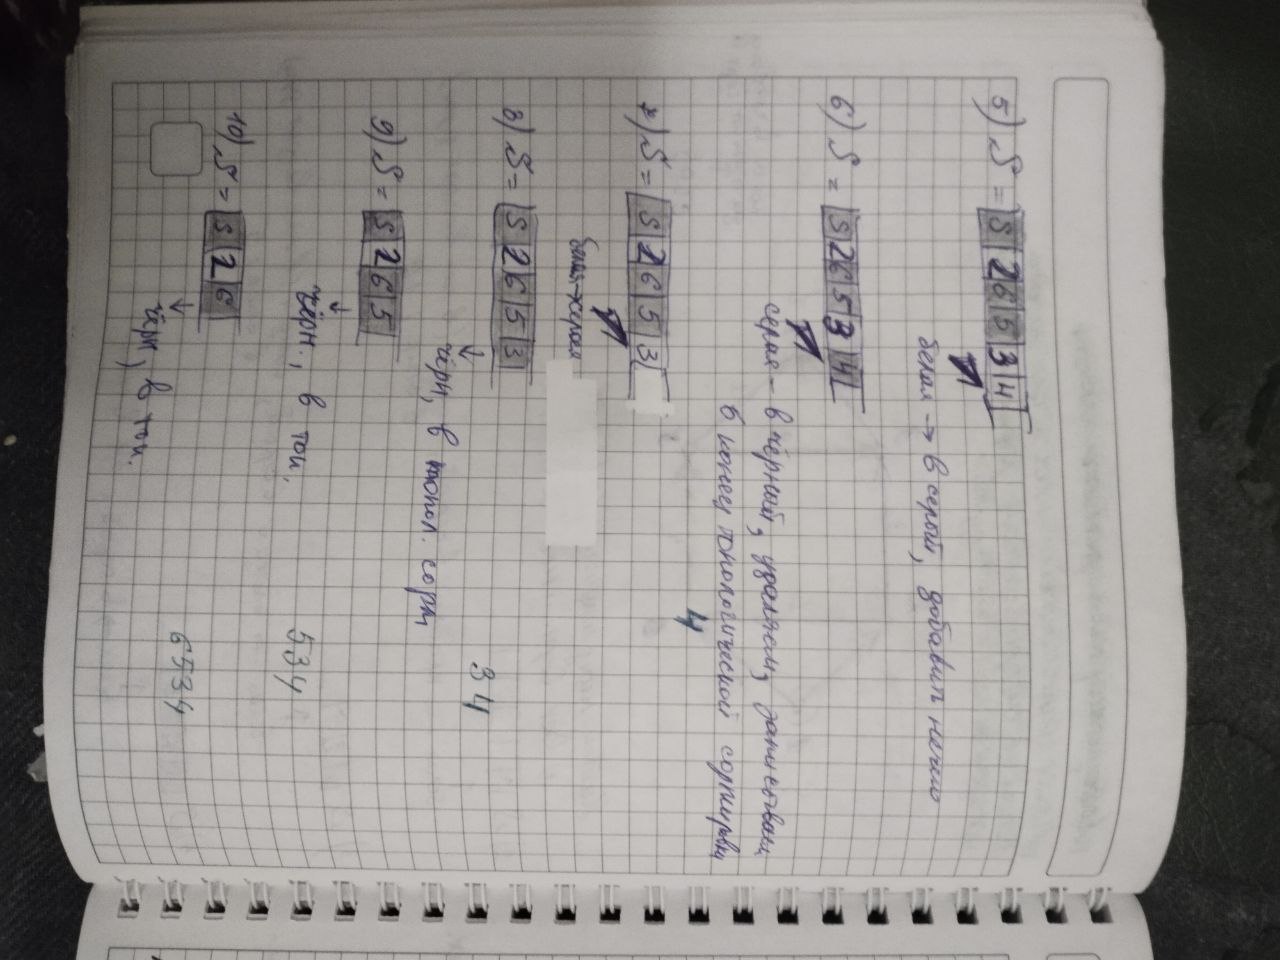 5) S = S 2 6 5 3 4
белая → в серый, добавить нечего
6) S = S 2 6 5 3 4
серая – в чёрный, удаляем, записываем
в конец топологической сортировки
4
7) S = S 2 6 5 3
белая → серая
8) S = S 2 6 5 3
3 4
↓
чёрн, в топол. сорт
9) S = S 2 6 5
↓
чёрн., в топ.
534
10) S = S 2 6
6534
↓
чёрн, в топ.